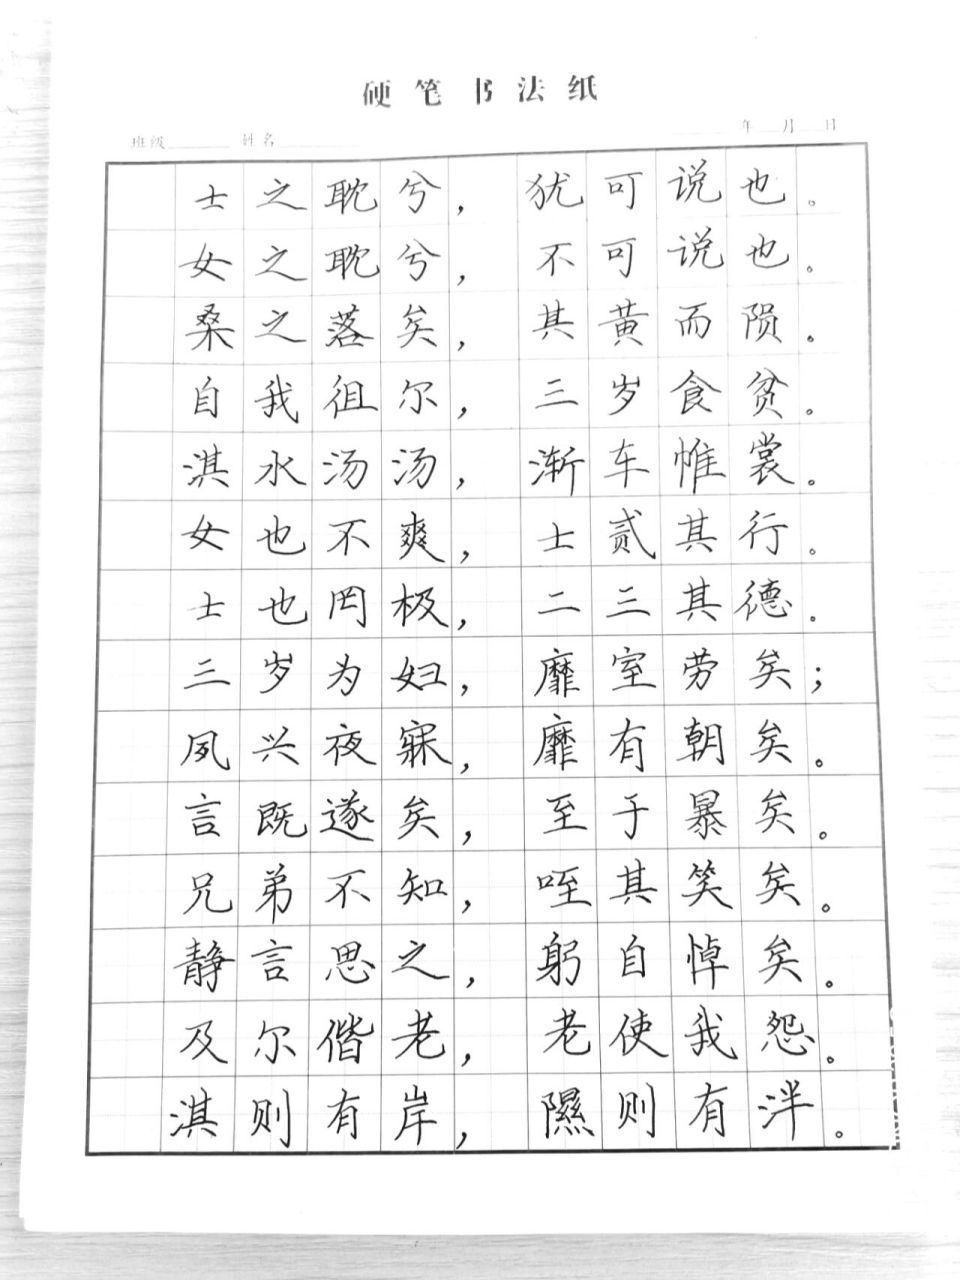 硬笔书法纸
班级 姓名 年 月 日
士之耽兮，犹可说也。
女之耽兮，不可说也。
桑之落矣，其黄而陨。
自我徂尔，三岁食贫。
淇水汤汤，渐车帷裳。
女也不爽，士贰其行。
士也罔极，二三其德。
三岁为妇，靡室劳矣；
夙兴夜寐，靡有朝矣。
言既遂矣，至于暴矣。
兄弟不知，咥其笑矣。
静言思之，躬自悼矣。
及尔偕老，老使我怨。
淇则有岸，隰则有泮。